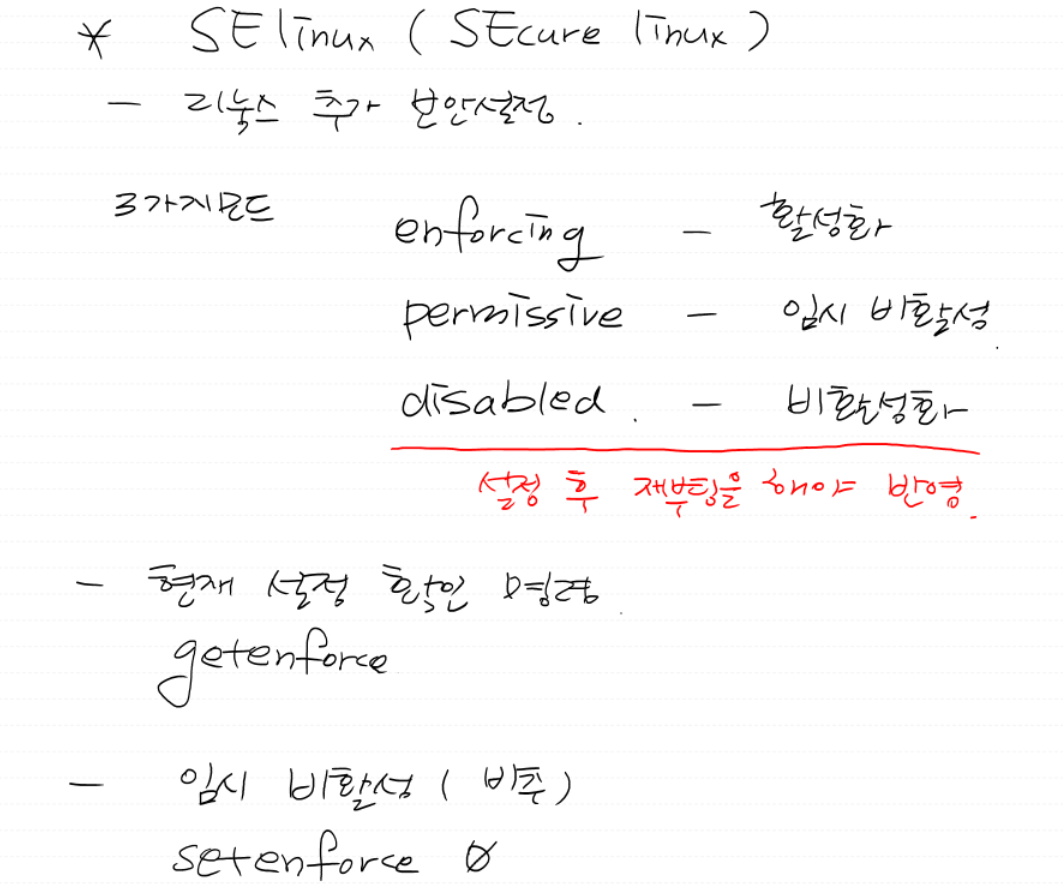 * SElinux ( SEcure linux )
- 리눅스 추가 보안설정.
3가지모드 enforcing - 활성화
permissive - 임시 비활성.
disabled. - 비활성화
설정 후 재부팅을 해야 반영.
- 현재 설정 확인 명령.
getenforce
- 임시 비활성 ( 비추 )
setenforce 0